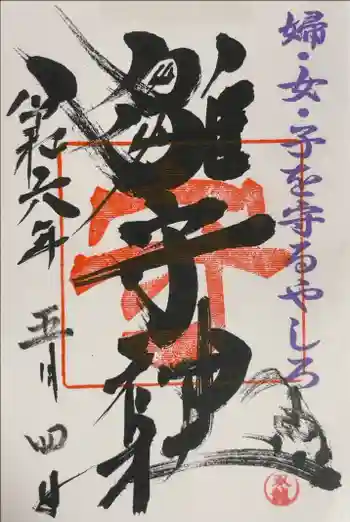 婦・女・子を守るやしろ
雛守神社
令和六年
五月四日